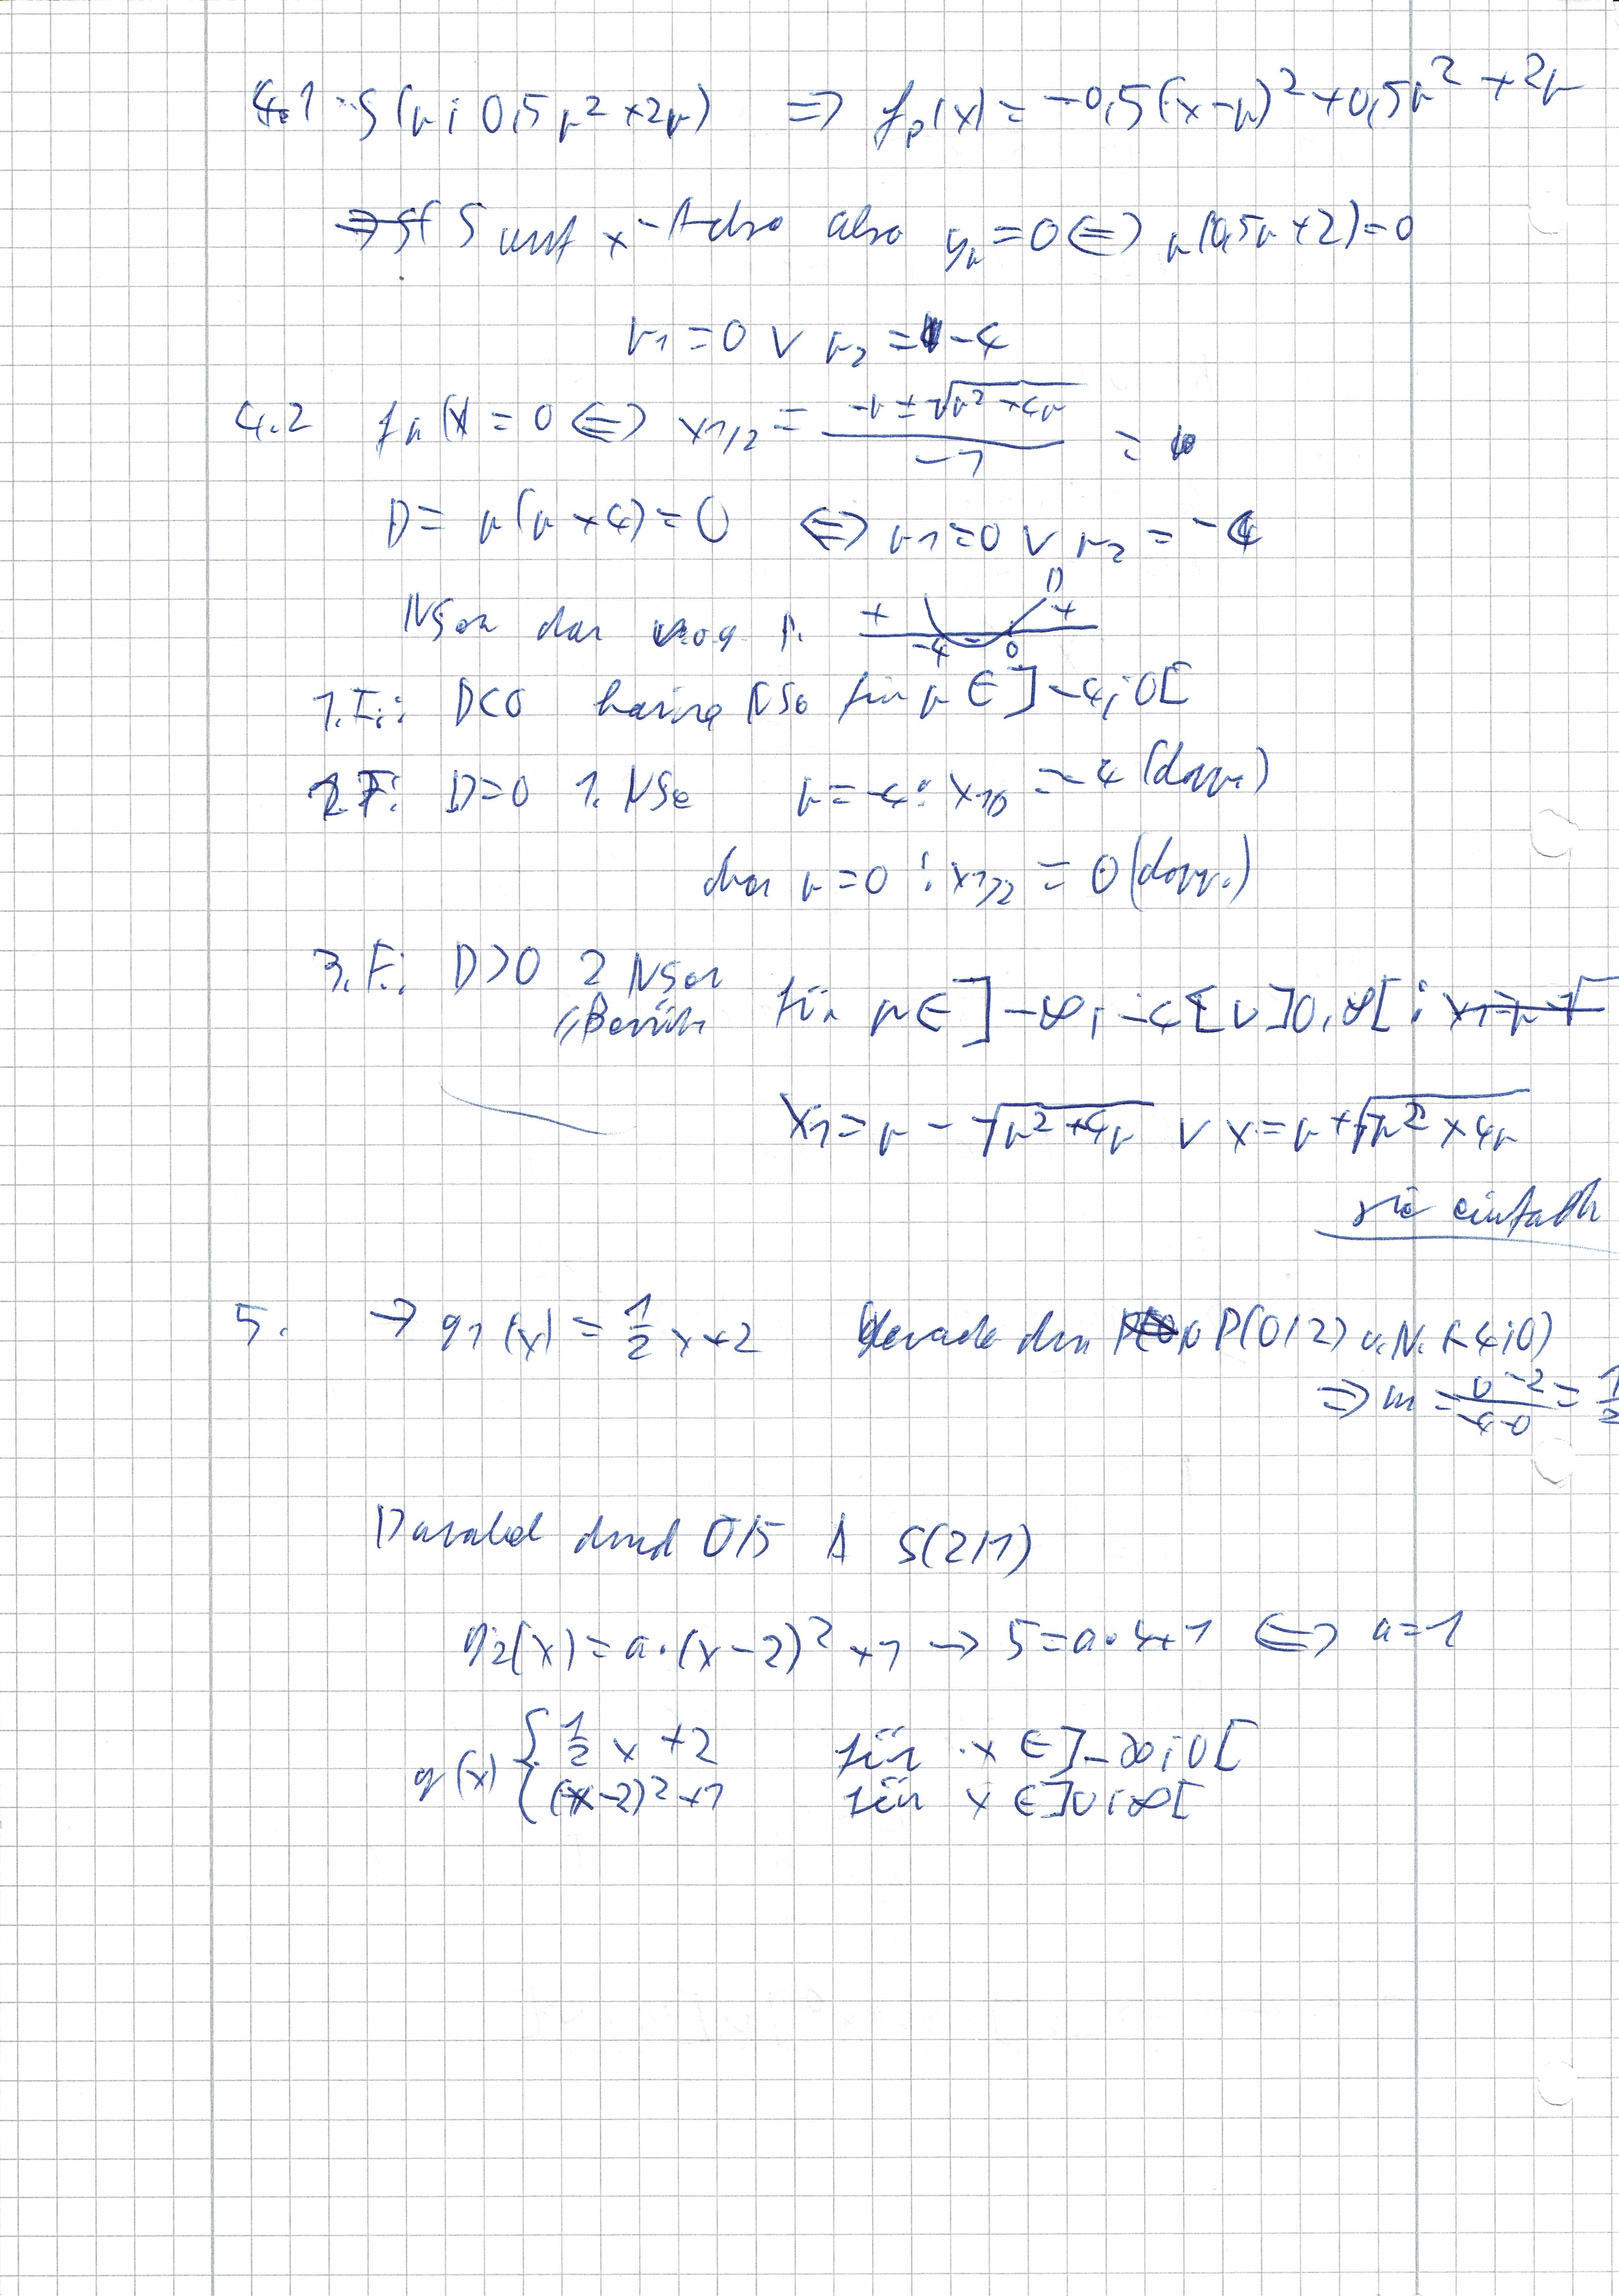 4.1 S(p; 0,5p²+2p) ⇒ f_p(x) = -0,5(x-p)²+0,5p²+2p
S auf x-Achse also y_p = 0 ⇔ p(0,5p+2)=0
p₁=0 ∨ p₂ = -4
4.2 f_p(x) = 0 ⇔ x₁/₂ = (-p ± √(p²+4p))/(-1) =
D = p(p+4) = 0 ⇔ p₁=0 ∨ p₂ = -4
NSen
+ -4 - 0 + D
1.F.: D<0 keine NSe für p ∈ ]-4;0[
2.F: D=0 1. NSe p=-4: x₁₀ = -4 (dopp.)
oder p=0 : x₁/₂ = 0 (dopp.)
3.F.: D>0 2 NSen für p ∈ ]-∞; -4[ ∨ ]0;∞[ :
x₁ = p - √(p²+4p) ∨ x = p + √(p²+4p)
einfach
5. → g₁(x) = ½x+2 Gerade P(0/2) u. N. (-4;0)
⇒ m = (0-2)/(-4-0) = ½
Parabel durch 0/5 ∧ S(2/1)
g₂(x) = a·(x-2)²+1 → 5=a·4+1 ⇔ a=1
g(x) { ½x+2 für x ∈ ]-∞;0[
(x-2)²+1 für x ∈ ]0;∞[